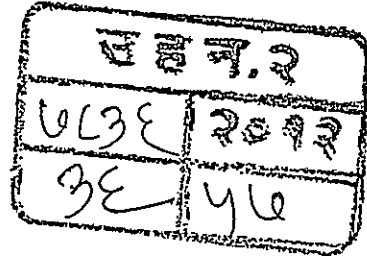 उ ह न.२
७८३६ २०१२
३६ ५७